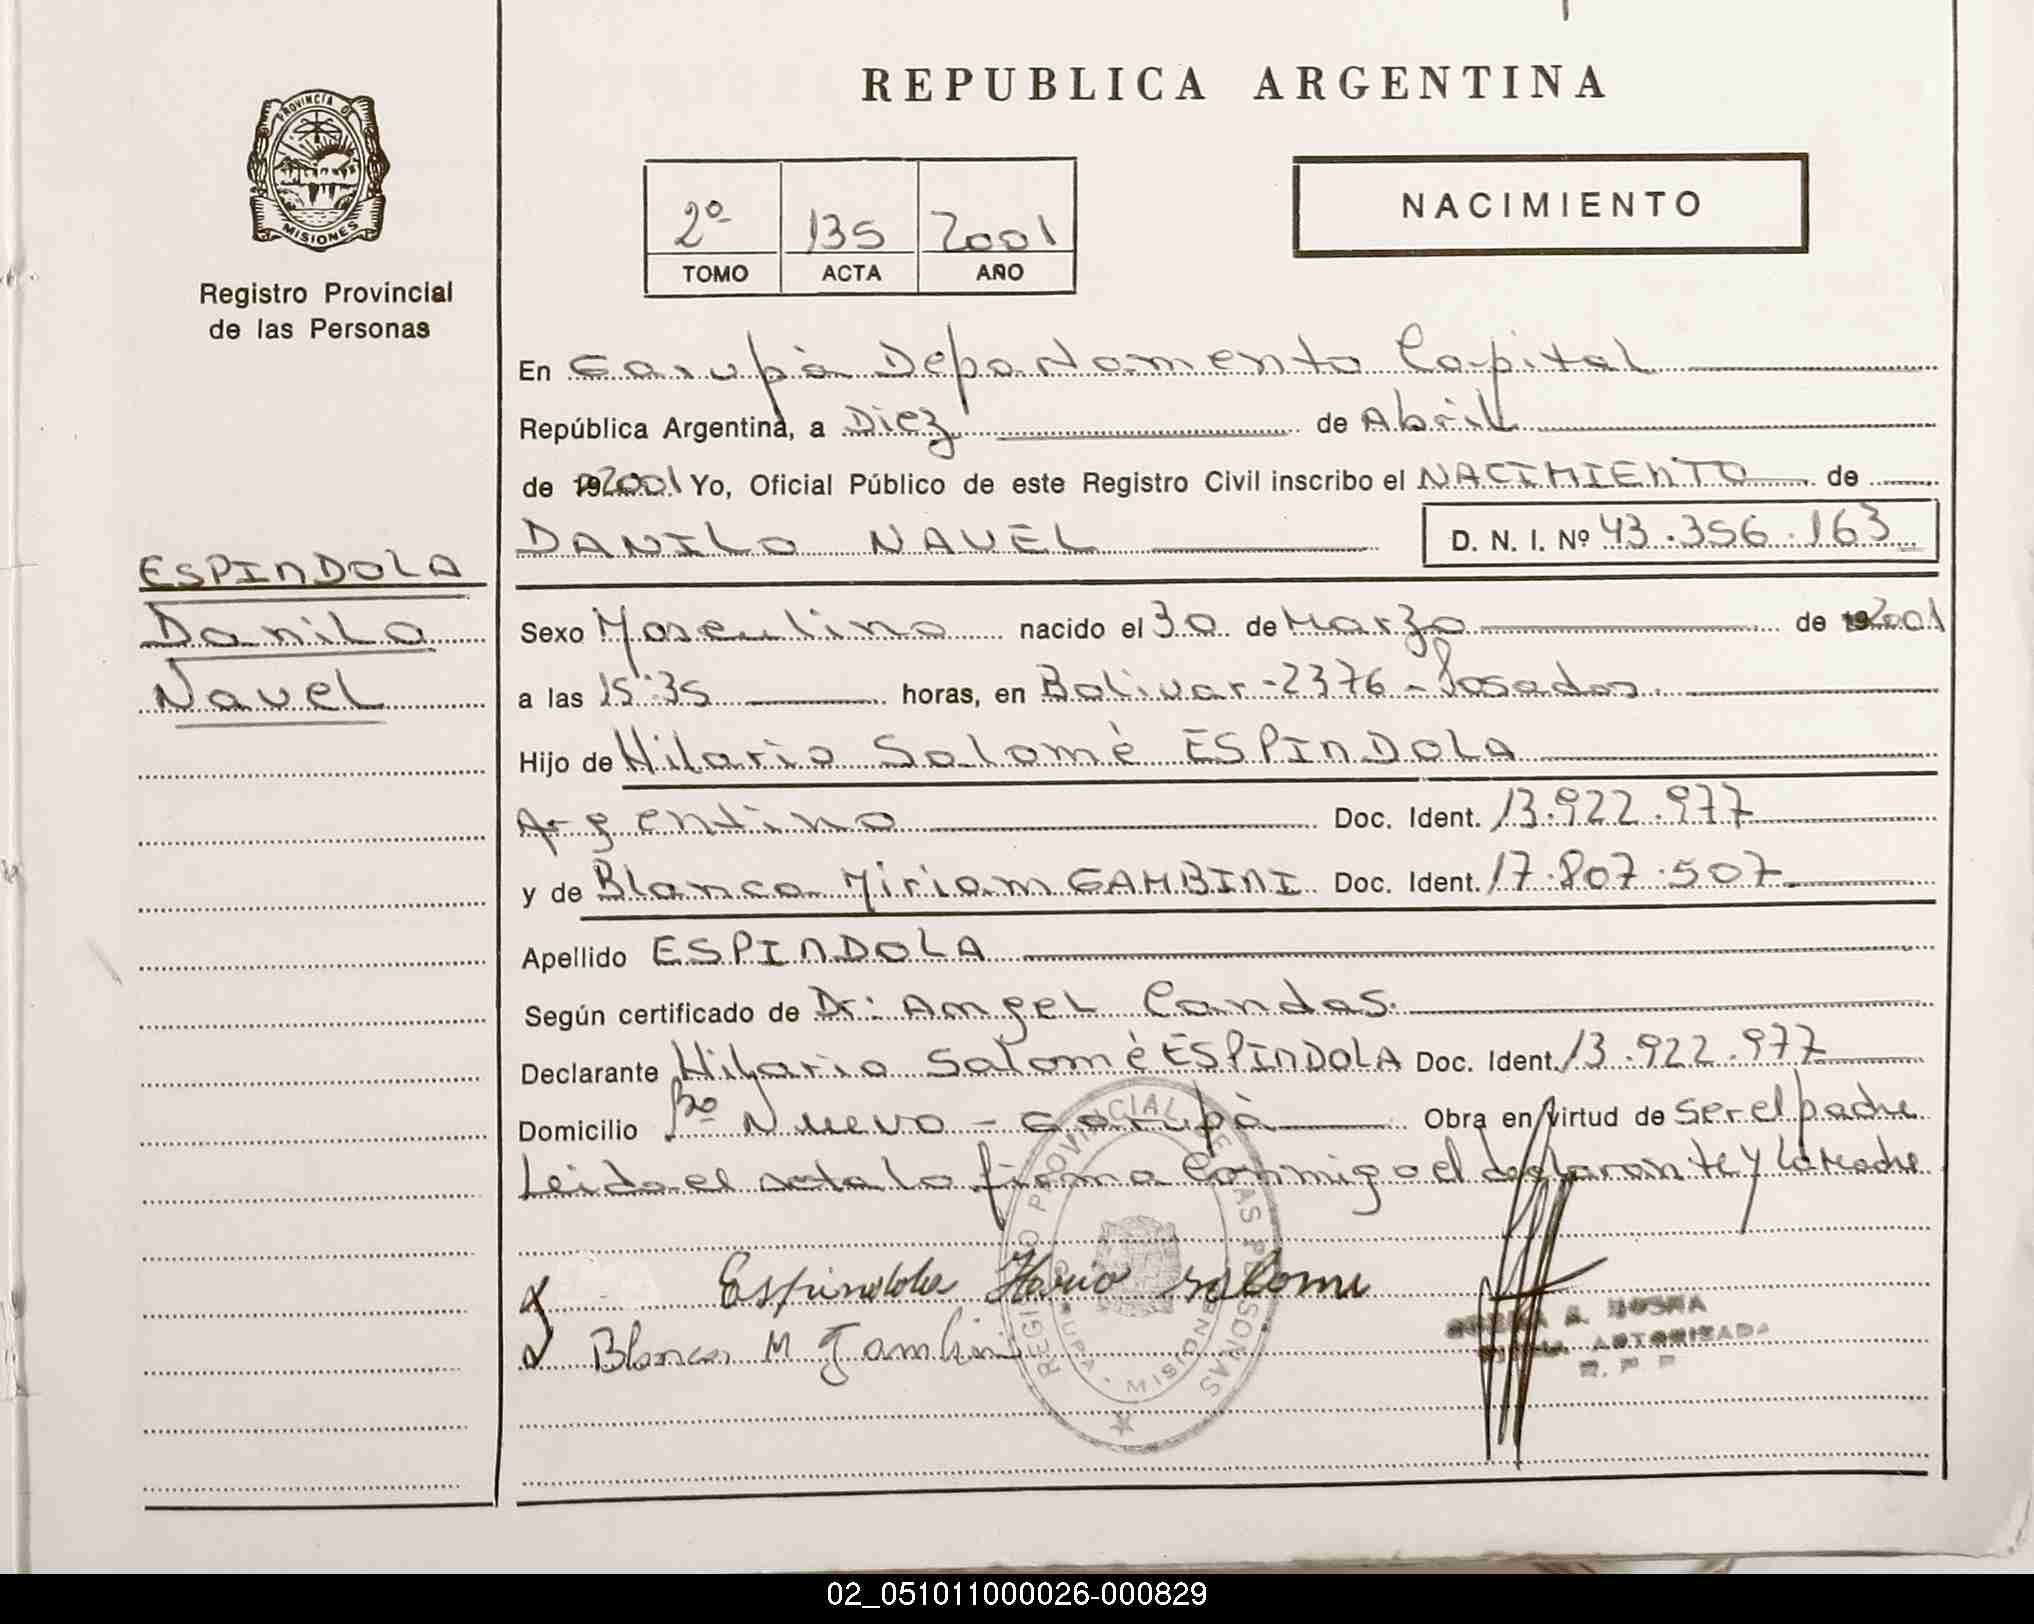 REPUBLICA ARGENTINA
PROVINCIA DE
MISIONES
Registro Provincial
de las Personas
NACIMIENTO
2º 135 2001
TOMO ACTA AÑO
En Garupà Departamento Capital
República Argentina, a Diez de Abril
de 192001 Yo, Oficial Público de este Registro Civil inscribo el NACIMIENTO de
DANILO NAUEL D. N. I. Nº 43.356.163
ESPINDOLA
Danilo
Nauel
Sexo Masculino nacido el 30 de Marzo de 192001
a las 15:35 horas, en Bolivar-2376-Posadas.
Hijo de Hilario Salomè ESPINDOLA
Argentino Doc. Ident. 13.922.977
y de Blanca Miriam GAMBINI Doc. Ident. 17.807.507
Apellido ESPINDOLA
Según certificado de Dr: Angel Candas.
Declarante Hilario Salomè ESPINDOLA Doc. Ident. 13.922.977
Domicilio Bº Nuevo - Garupà Obra en virtud de ser el padre
Leida el acta la firma conmigo el declarante y la Madre
Espindola Ilario salome
Blanca M Gambini
REGISTRO PROVINCIAL DE LAS PERSONAS
GARUPA - MISIONES
AUTORIZADA
R. P. P.
02_051011000026-000829